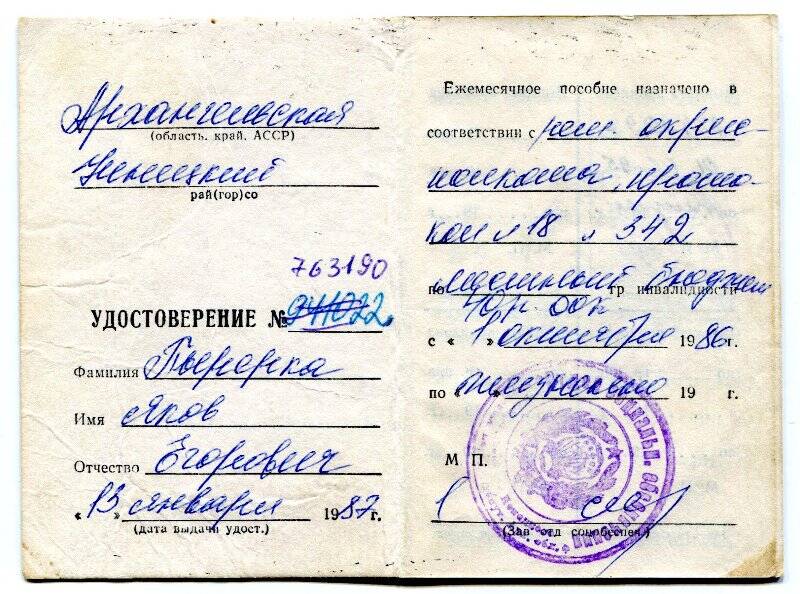 Архангельская
(область. край. АССР)
Ненецкий
рай(гор)со
763190
УДОСТОВЕРЕНИЕ № 941022
Фамилия Пырерка
Имя Яков
Отчество Егорович
« 13 » января 1987 г.
(дата выдачи удост.)
Ежемесячное пособие назначено в
соответствии с реш. окрис-
полкома, прото-
кол № 18 № 342
по местный бюджет гр инвалидности
40 р. 00 к
с « 1 » октября 1986 г.
по « » пожизненно 19 г.
М П.
(Зав отд собобеспеч.)